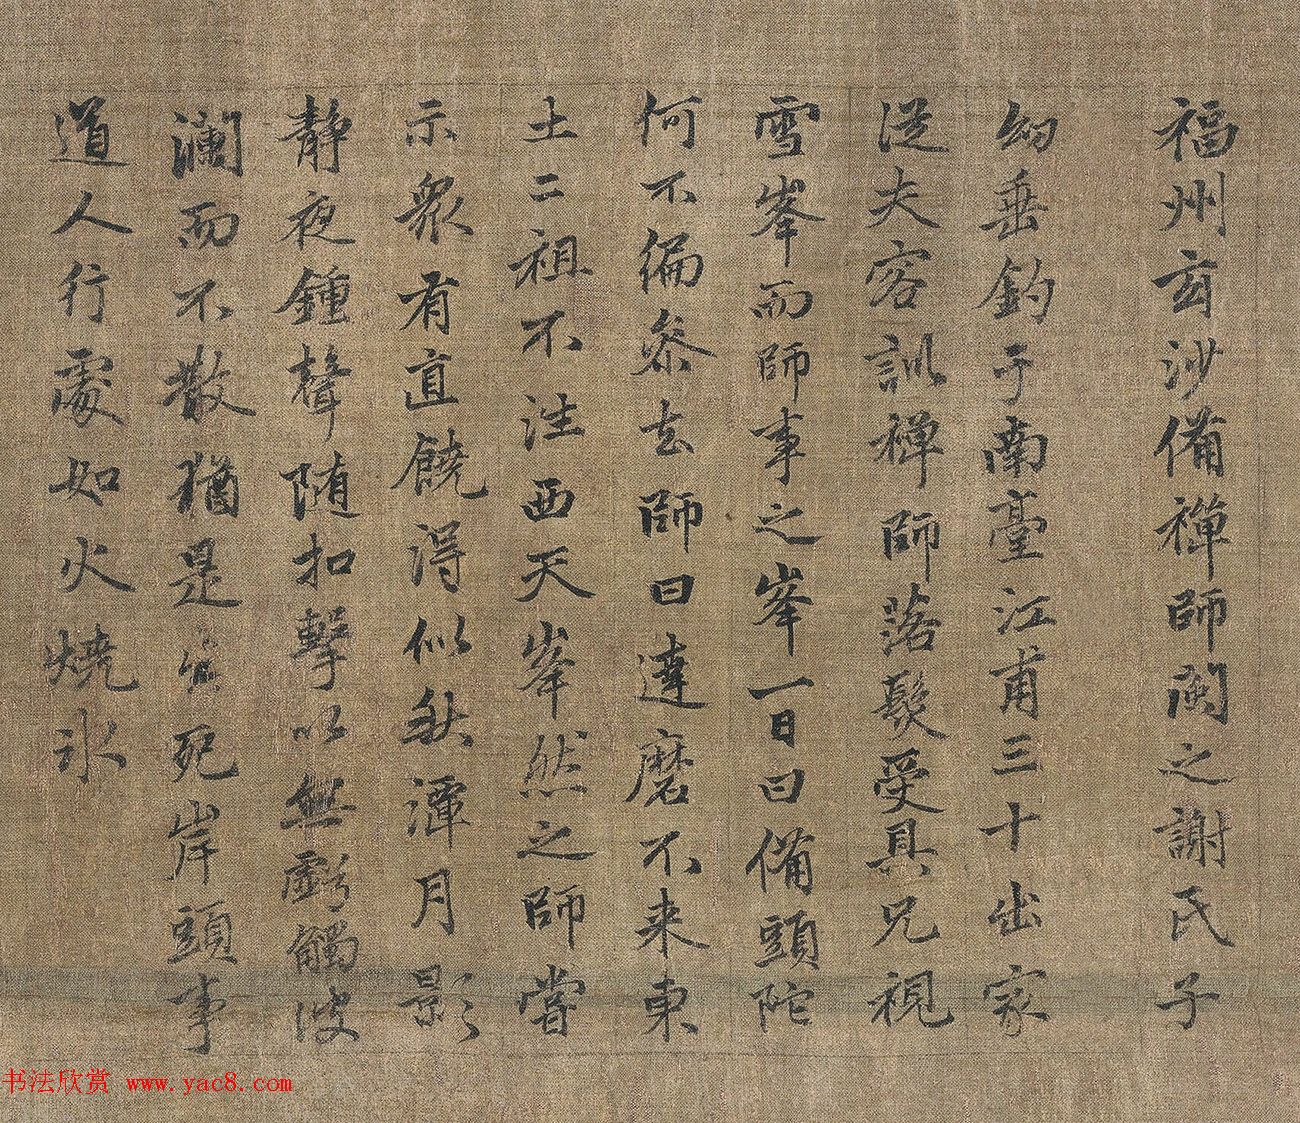 福州玄沙備禪師閩之謝氏子
幼垂釣于南臺江甫三十出家
從夫容訓禪師落髮受具兄視
雪峯而師事之峯一日曰備頭陀
何不徧叅去師曰達磨不来東
土二祖不往西天峯然之師嘗
示衆有直饒得似秋潭月影
靜夜鍾聲随扣擊以無虧觸波
瀾而不散猶是生死岸頭事
道人行處如火燒氷
书法欣赏 www.yac8.com